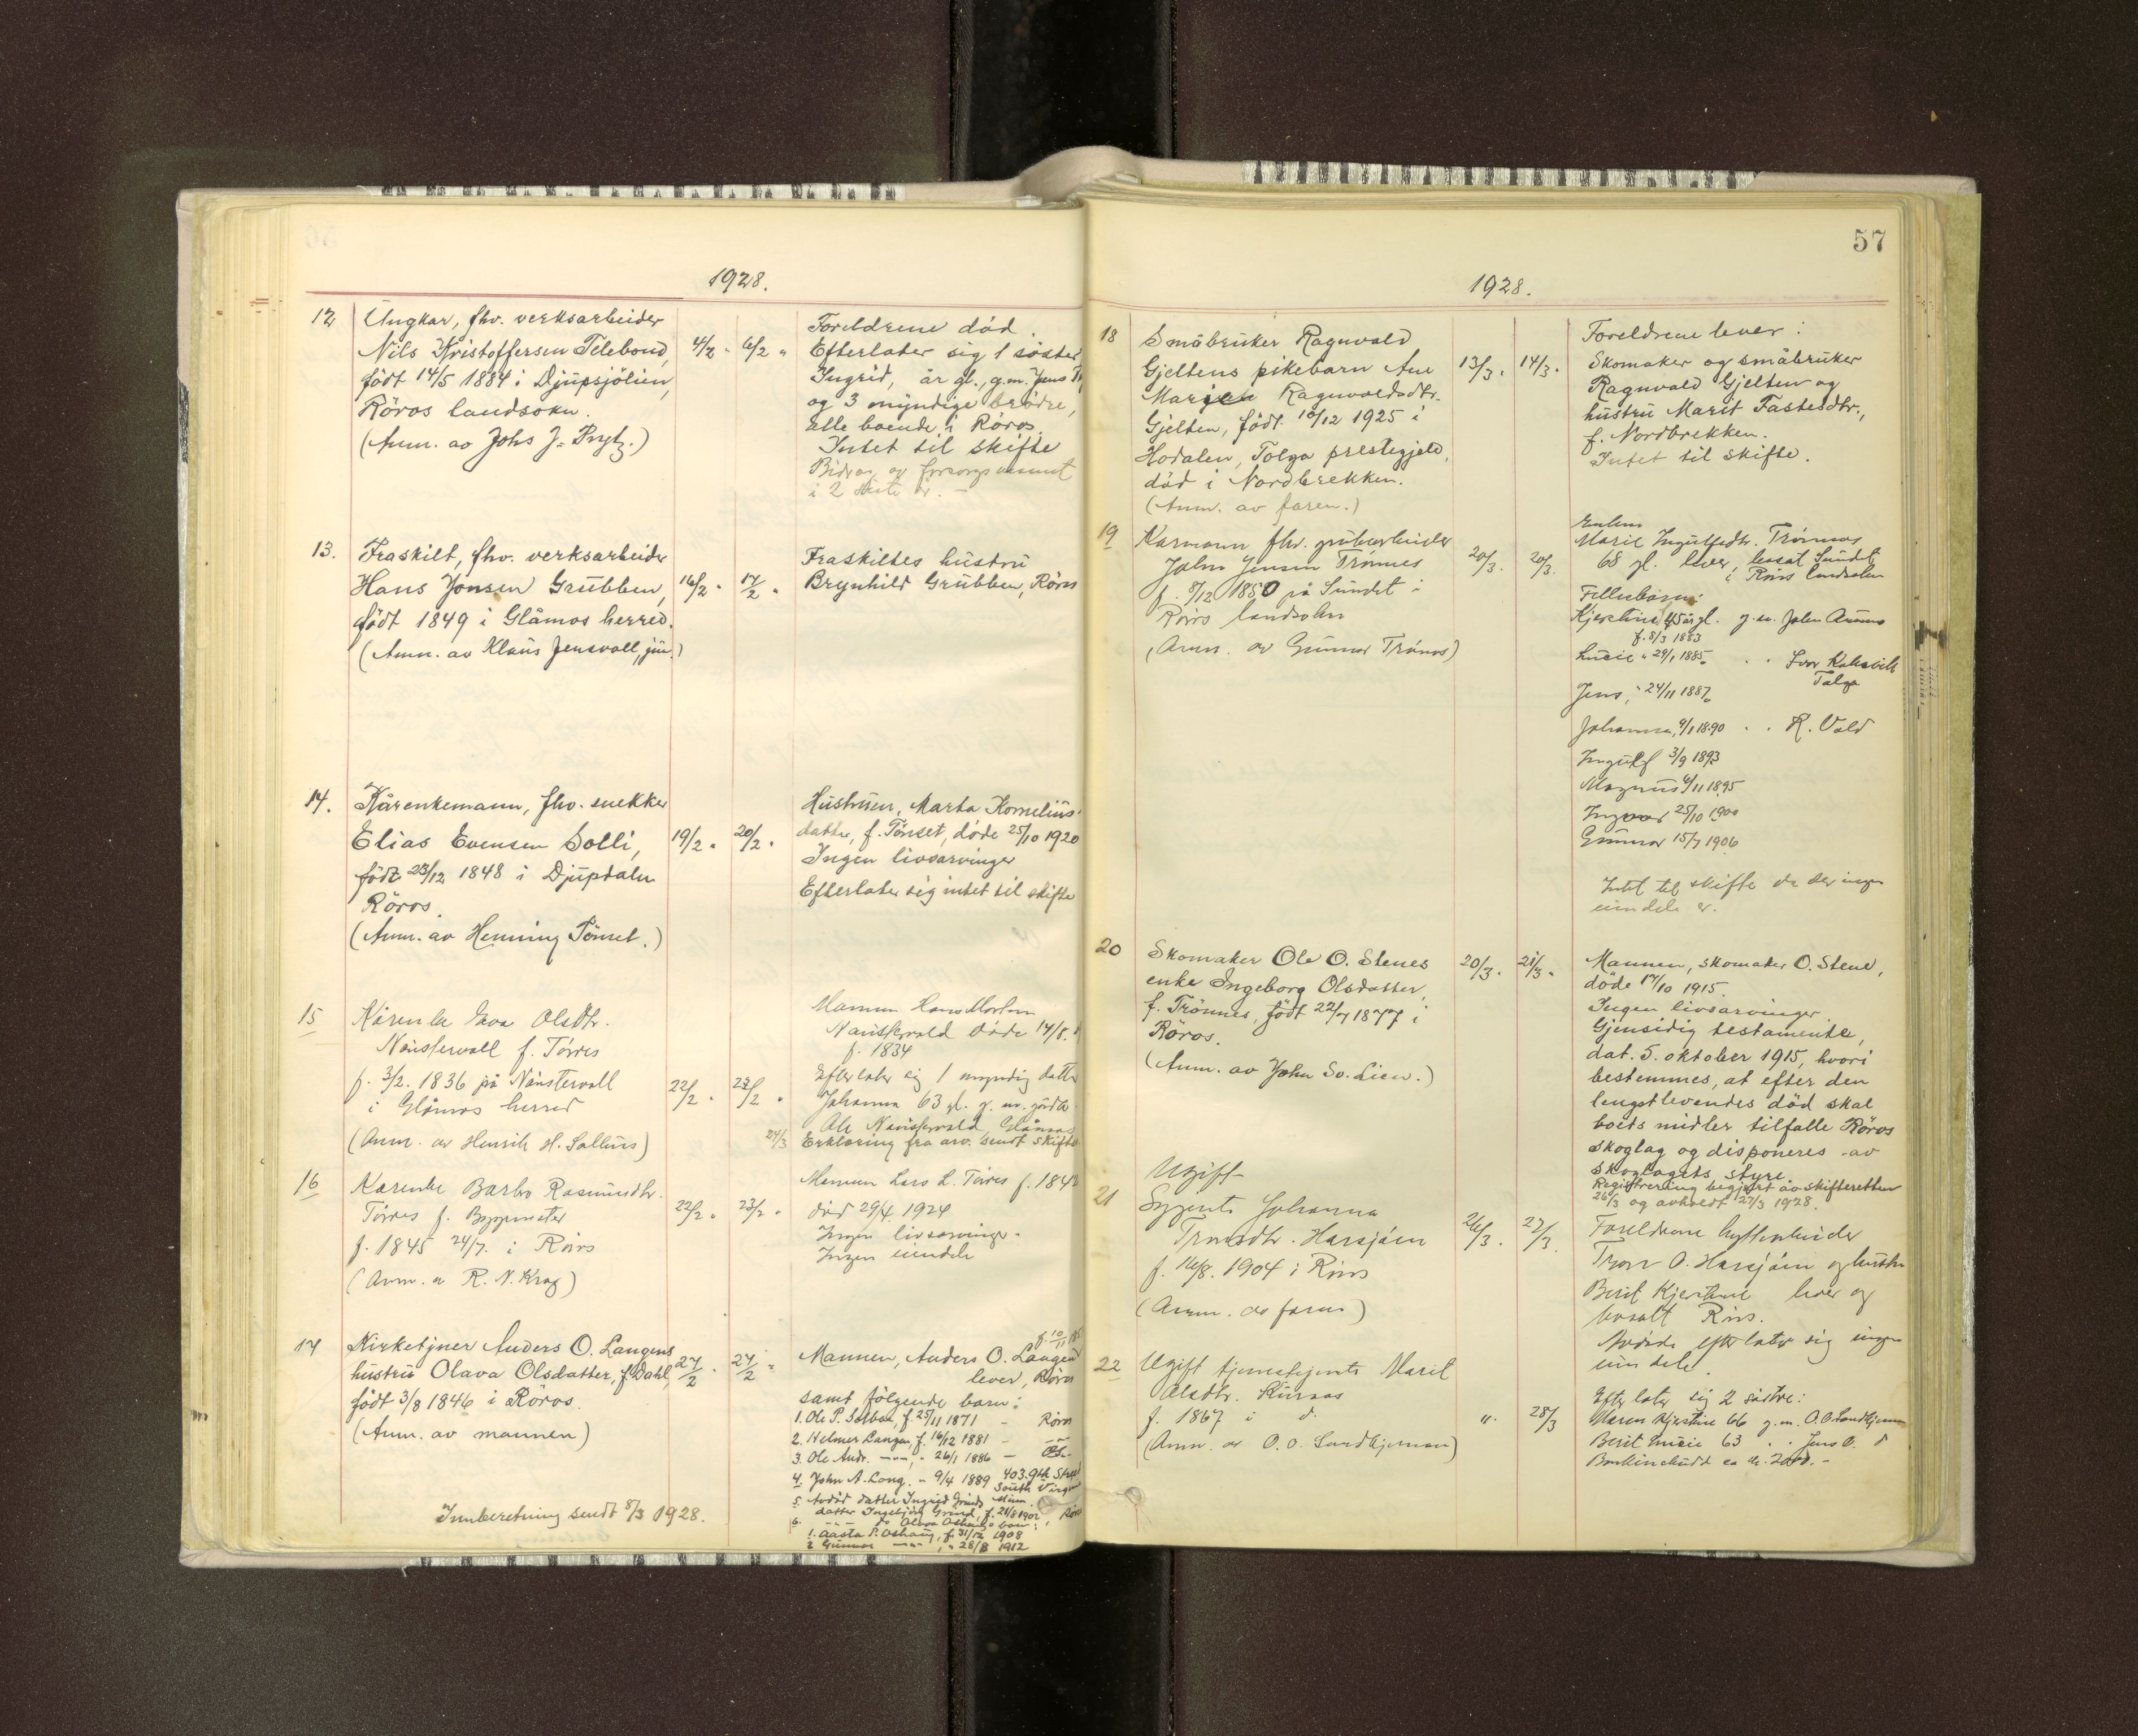 1928.
12
Ungkar, fhv. verksarbeider
Nils Kristoffersen Telebond,
født 14/5 1884 i Djupsjölien,
Röros landsokn.
(Anm. av Johs J. Prytz.)
4/2 - 6/2 "
Foreldrene död.
Efterlater sig 1 söster
Ingrid, år gl., g.m. Jens
og 3 myndige brødre,
alle boende i Röros.
Intet til skifte
Bidrag av forsorgsvesenet
i 2 siste år. -
13.
Fraskilt, fhv. verksarbeider
Hans Jonsen Grubben,
født 1849 i Glåmos herred.
(Anm. av Klaus Jensvoll, jun.)
16/2 - 17/2 "
Fraskiltes hustru
Brynhild Grubben, Röros
14.
Kårenkemann, fhv. snekker
Elias Evensen Solli,
födt 23/12 1848 i Djupdalen
Röros.
(Anm. av Henning Tönset.)
19/2 " 20/2 "
Hustruen, Marta Kornelius-
datter, f. Tönset, döde 25/10 1920
Ingen livsarvinger
Efterlater sig intet til skifte
15
Kårenke Olsdtr.
Naustervoll f. Törres
f. 3/2. 1836 på Naustervoll
i Glåmos herred
(Anm. av Henrik H. Sollius)
22/2 " 23/2 "
Mannen Hans Morten
Naustervold døde 14/8.
f. 1834
Efterlater sig 1 myndig datter
Johanna 63 gl. g. m. gårdbr
Ole Naustervold, Glåmos
24/3 Erklæring fra arv. sendt skifte
16
Karenke Barbro Rasmusdtr.
Törres f. Byggmester
f. 1845 24/7. i Röros
(Anm. a R. N. Krag)
22/2 " 23/2 "
Mannen Lars L. Törres f. 1848
död 29/4 1924
Ingen livsarvinger.
Ingen eiendele
17
Kirketjner Anders O. Langens
hustru Olava Olsdatter, f. Dahl,
født 3/8 1846 i Röros.
(Anm. av mannen)
27/2 - 27/2 "
f. 10/11
Mannen, Anders O. Langen
lever, Röros
samt følgende barn:
1. Ole P. Solbak, f. 25/11 1871 - Röros
2. Helmer Langen, f. 14/12 1881 - -"-
3. Ole Andr. -"-, - 26/1 1886 -
4. John A. Long, - 9/4 1889 403. 9th Street
South Virginia
5. Avdöd datter Ingrid Grinds Minn.
datter Ingebjörg Grind, f. 28/8 1902, Röros
6. -"- do Olava Oshaugs barn:
1. Aasta P. Oshaug, f. 31/12 1908
2. Gunnar -"-, - 28/8 1912
Innberetning sendt 8/3 1928.
57
1928.
18
Småbruker Ragnvald
Gjeltens pikebarn Ane
Margen Ragnvaldsdtr.
Gjelten, født 10/12 1925 i
Hodalen, Tolga prestegjeld,
död i Nordbrekken.
(Anm. av faren.)
13/3. 14/3.
Foreldrene lever:
Skomaker og småbruker
Ragnvald Gjelten og
hustru Marit Fastesdtr.,
f. Nordbrekken.
Intet til skifte.
19
Kårmann fhv. grubearbeider
John Jensen Trönnes
f. 8/2 1850 på Sundet i
Röros landsokn
(Anm. av Gunnar Trönnes)
20/3. 20/3.
Enken
Marie Ingulfsdtr. Trönnes
68 gl. lever, bosat Sundet
i Röros landsokn
Fellesbarn:
Kjerstine 45 år gl. g. m. John Aunes
f. 8/3 1883
Lucie " 29/1 1885. " " Ivar Kokvik
Tolga
Jens, " 24/11 1887.
Johanna, 9/1 1890 " " R. Vold
Ingulf 3/9 1893
Magnus 6/11 1895
Ingvar 25/10 1900
Gunnar 15/7 1906
Intet til skifte da der ingen
eiendele er.
20
Skomaker Ole O. Stenes
enke Ingeborg Olsdatter,
f. Trönnes, født 22/7 1877 i
Röros.
(Anm. av John Sv. Lien.)
20/3. 21/3.
Mannen, skomaker O. Stene,
döde 17/10 1915.
Ingen livsarvinger
Gjensidig testamente,
dat. 5. oktober 1915, hvori
bestemmes, at efter den
lengstlevendes död skal
boets midler tilfalle Röros
skoglag og disponeres av
skoglagets styre.
Registrering begjært av skifteretten
26/3 og avholdt 27/3 1928.
21
Ugift
Sypente Johanna
Tronsdtr. Harsjöen
f. 16/8. 1904 i Röros
(Anm. av faren)
26/3. 27/3.
Foreldrene hyttearbeider
Tron O. Harsjöen og hustru
Berit Kjerstine lever og
bosatt Röros.
Avdøde efterlater sig ingen
eiendele.
22
Ugift tjenestejente Marit
Olsdtr. Kurås
f. 1867 i d.
(Anm. av O. O. Sandkjernan)
". 28/3
Efterlater sig 2 søstre:
Maren Kjerstine 66 g. m. O. O. Sandkjernan
Berit Lucie 63 " " Jens O. d
Bankinskudd ca kr. 200. -